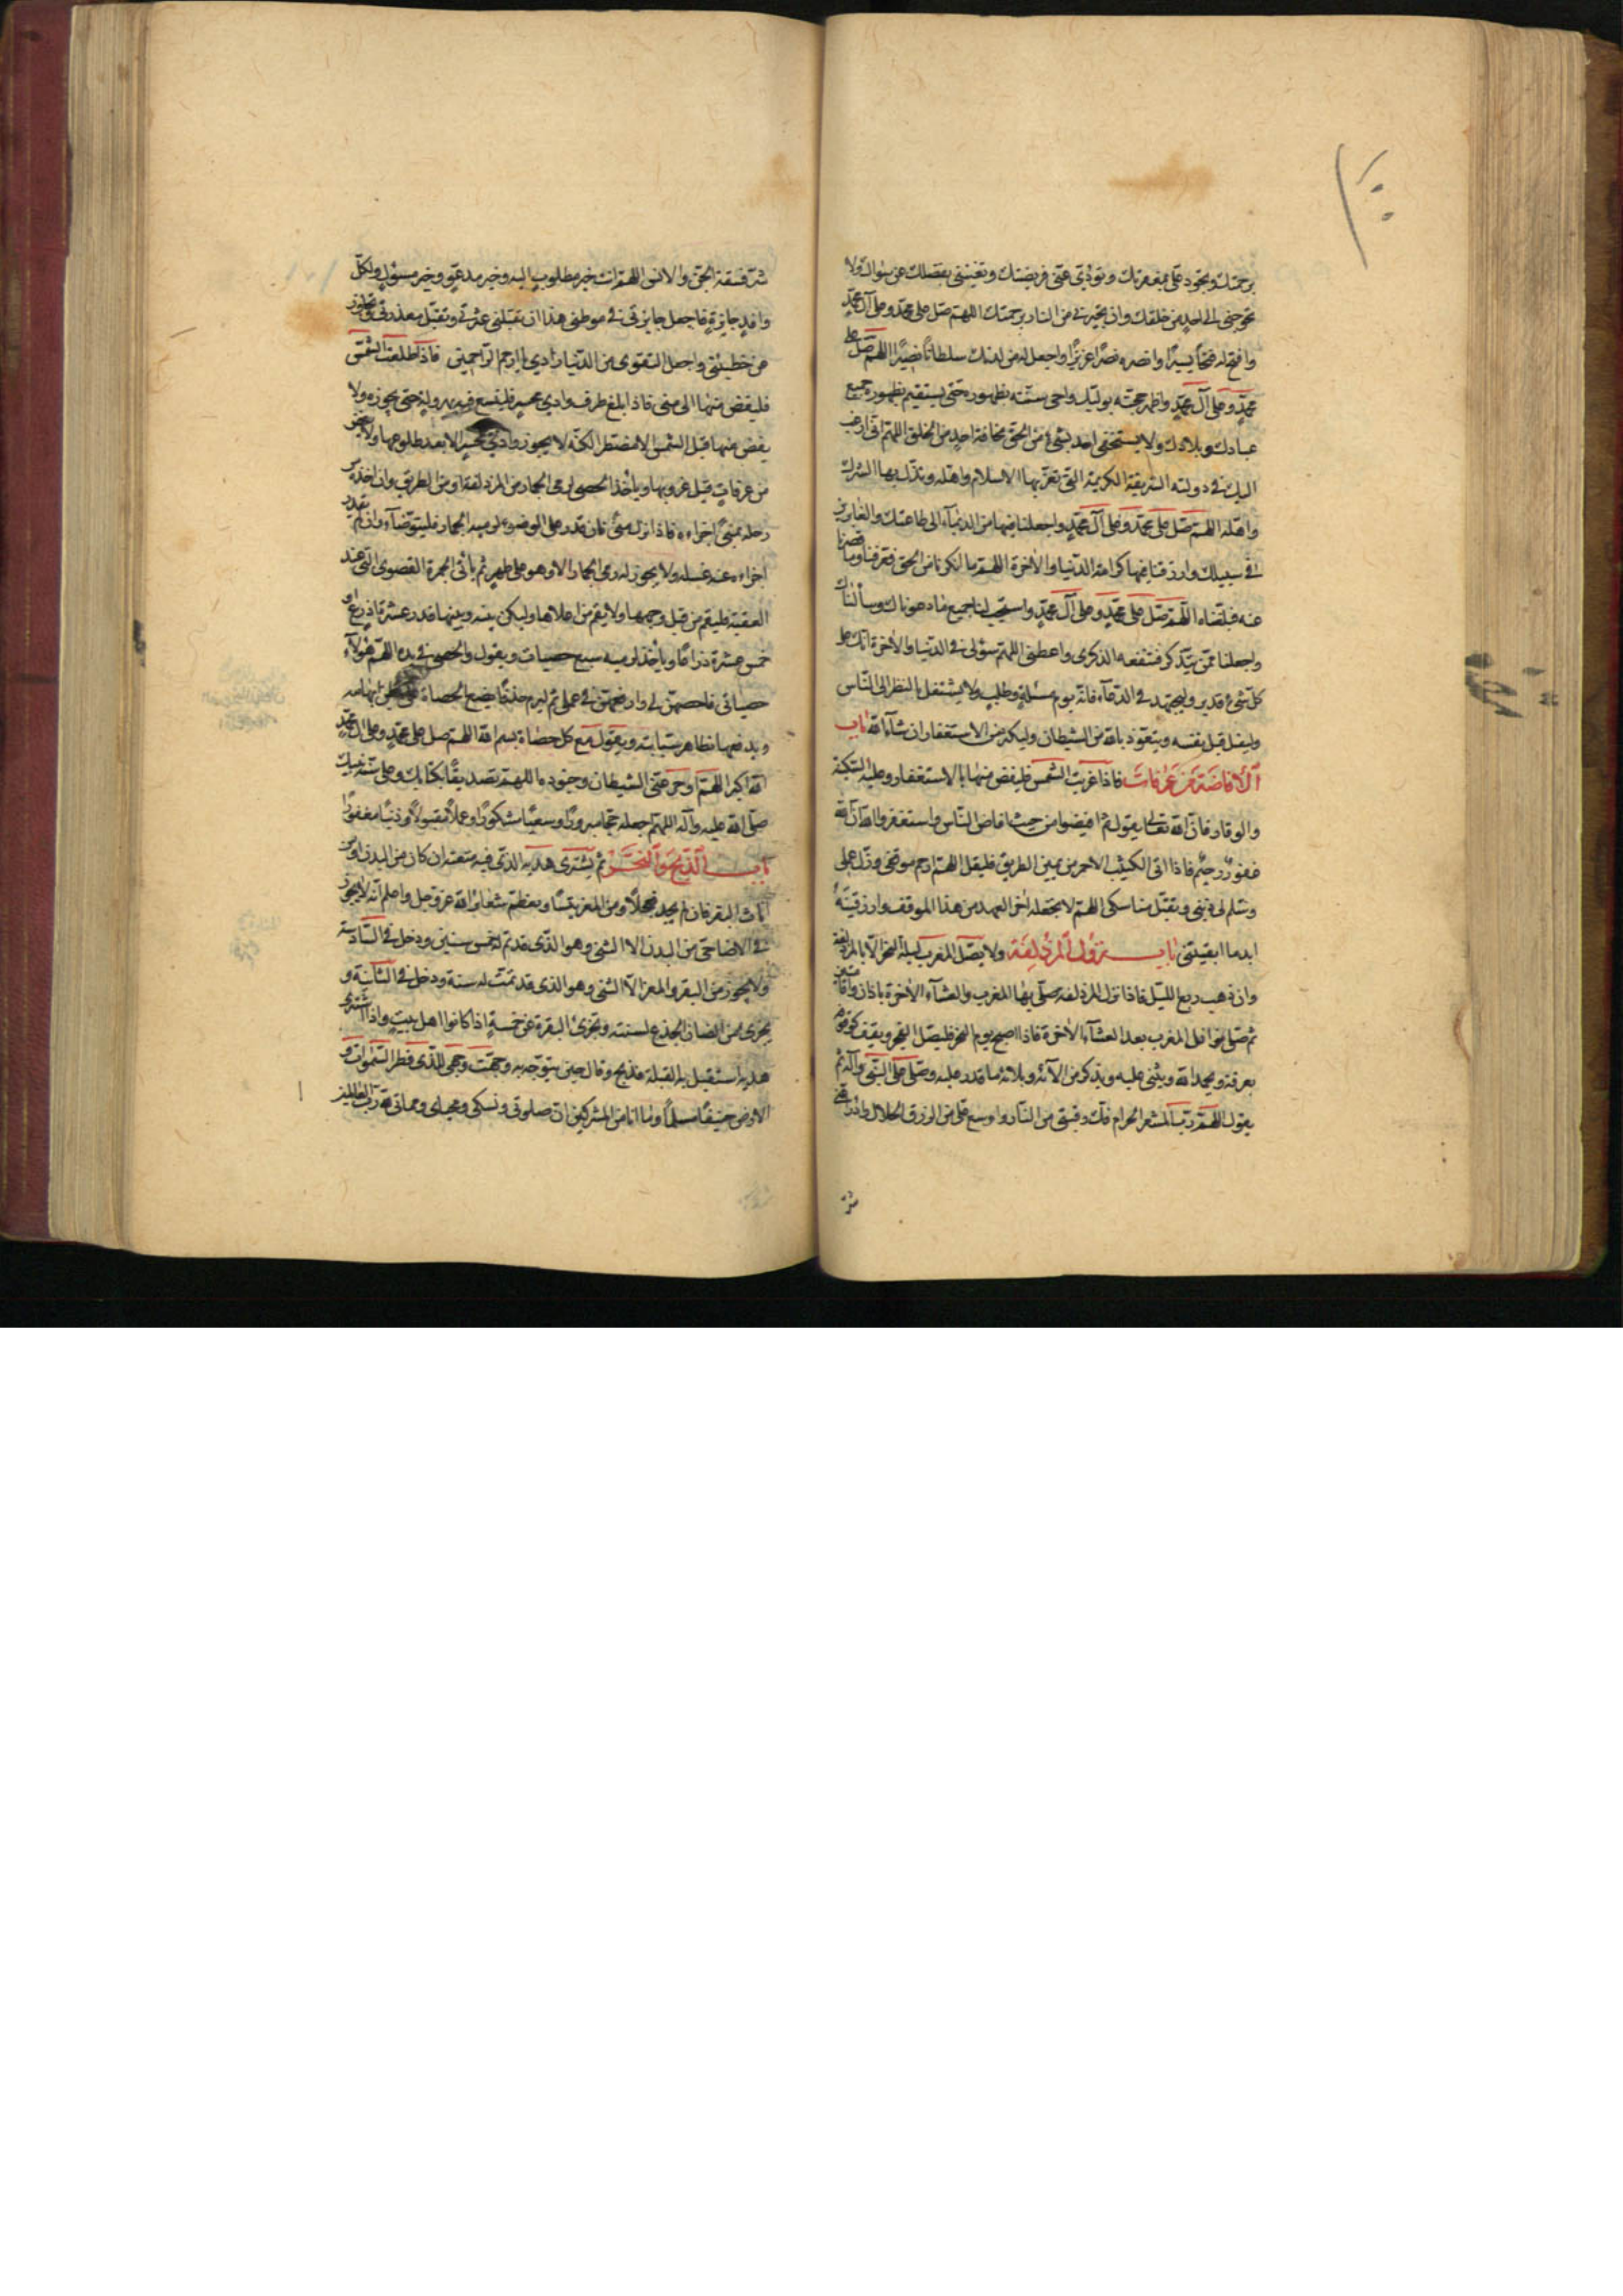 برحمتك وتجود علي بمغفرتك وتؤدي عني فريضتك وتغنيني بفضلك عن سواك ولا
تحوجني الى احد من خلقك وان تجيرني من النار برحمتك اللهم صل على محمد وعلى آل محمد
وافتح له فتحا يسيرا وانصره نصرا عزيزا واجعل له من لدنك سلطانا نصيرا اللهم صل على
محمد وعلى آل محمد واظهر حجته بوليك واحي سنته بظهوره حتى يستقيم بظهوره جميع
عبادك وبلادك ولا يستخفي احد بشيء من الحق مخافة احد من الخلق اللهم اني ارغب
اليك في دولته الشريفة الكريمة التي تعز بها الاسلام واهله وتذل بها الشرك
واهله اللهم صل على محمد وعلى آل محمد واجعلنا فيها من الدعاء الى طاعتك والفايزين
في سبيلك وارزقنا فيها كرامة الدنيا والآخرة اللهم ما انكرنا من الحق فعرفناه وما قصرنا
عنه فبلغناه اللهم صل على محمد وعلى آل محمد واستجب لنا جميع ما دعوناك وسألناك
واجعلنا ممن يتذكر فتنفعه الذكرى واعطني اللهم سؤلي في الدنيا والآخرة انك على
كل شيء قدير وليجتهد في الدعاء فانه يوم مسئلة وطلب ولا يشتغل بالنظر الى الناس
وليقبل قبل نفسه ويتعوذ بالله من الشيطان وليكثر من الاستغفار ان شاء الله باب
الافاضة من عرفات فاذا غربت الشمس فليفض منها بالاستغفار وعليه السكينة
والوقار فان الله تعالى يقول ثم افيضوا من حيث افاض الناس واستغفروا الله ان الله
غفور رحيم فاذا اتى الكثيب الاحمر من يمين الطريق فليقل اللهم ارحم موقفي وزك عملي
وسلم لي ديني وتقبل مناسكي اللهم لا تجعله آخر العهد من هذا الموقف وارزقنيه
ابدا ما ابقيتني باب نزول المزدلفة ولا يصل المغرب ليلة النحر الا بالمزدلفة
وان ذهب ربع الليل فاذا نزل المزدلفة صلى بها المغرب والعشاء الآخرة باذان واقامتين
ثم صلى نوافل المغرب بعد العشاء الآخرة فاذا اصبح يوم النحر فليصل الفجر ويقف كوقوفه
بعرفة ويحمد الله ويثني عليه ويذكر من آلائه وبلائه ما قدر عليه وصلى على النبي وآله ثم
يقول اللهم رب المشعر الحرام فك رقبتي من النار واوسع علي من الرزق الحلال وادرأ عني
شر
شر فسقة الجن والانس اللهم انت خير مطلوب اليه وخير مدعو وخير مسؤل ولكل
وافد جايزة فاجعل جايزتي في موطني هذا ان تقيلني عثرتي وتقبل معذرتي وتجاوز
عن خطيئتي واجعل التقوى من الدنيا زادي يا ارحم الراحمين فاذا طلعت الشمس
فليفض منها الى منى فاذا بلغ طرف وادي محسر فليسع فيه هرولة حتى يجوزه ولا
يفض منها قبل الشمس الا مضطرا لكنه لا يجوز وادي محسر الا بعد طلوعها ولا يفض
من عرفات قبل غروبها ويأخذ الحصى لرمي الجمار من المزدلفة او من الطريق وان اخذه من
رحله بمنى اجزاءه فاذا نزل منى فان قدر على الوضوء لرميه الجمار فليتوضأ وان لم يقدر
اجزاءه عنه غسله ولا يجوز له رمي الجمار الا وهو على طهر ثم يأتي الجمرة القصوى التي عند
العقبة فليقم من قبل وجهها ولا يقم من اعلاها وليكن بينه وبينها قدر عشرة اذرع او
خمس عشرة ذراعا ويأخذ لرميه سبع حصيات ويقول والحصى في يده اللهم هؤلاء
حصياتي فاحصهن لي وارفعهن في عملي ثم ليرم حذفا يضع الحصاة على ابهامه
ويدفعها بظاهر سبابته ويقول مع كل حصاة بسم الله اللهم صل على محمد وعلى آل محمد
الله اكبر اللهم ادحر عني الشيطان وجنوده اللهم تصديقا بكتابك وعلى سنة نبيك
صلى الله عليه وآله اللهم اجعله حجا مبرورا وسعيا مشكورا وعملا مقبولا وذنبا مغفورا
باب الذبح والنحر ثم يشترى هديه الذي فيه متعته ان كان من البدن او من
اناث البقر فان لم يجد فحلا ومن المعز تيسا ويعظم شعائر الله عز وجل واعلم انه لا يجوز
في الاضاحي من البدن الا الثني وهو الذي قد تم له خمس سنين ودخل في السادسة
ولا يجوز من البقر والمعز الا الثني وهو الذي قد تمت له سنة ودخل في الثانية و
يجزى من الضان الجذع لسنته وتجزئ البقرة عن خمسة اذا كانوا اهل بيت واذا اشترى
هديه استقبل به القبلة فذبح وقال حين يتوجه به وجهت وجهي للذي فطر السموات و
الارض حنيفا مسلما وما انا من المشركين ان صلوتي ونسكي ومحياي ومماتي لله رب العالمين